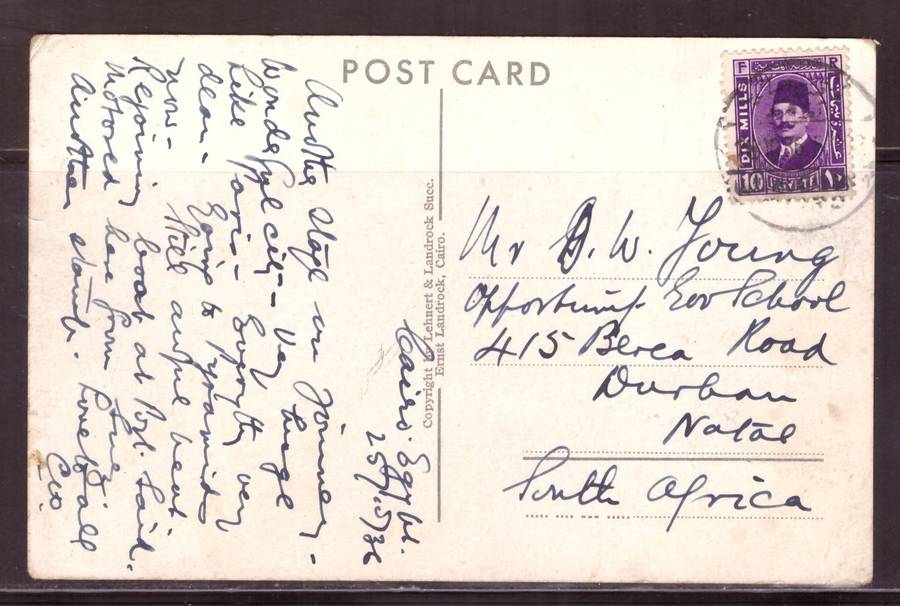 POST CARD
Cairo. Egypt.
25/5/36
Another stage in journey -
Wonderful city - Very large
Like Paris - Everything very
dear - Going to Pyramids
now - Still awful heat.
Rejoining boat at Port Said.
Motored here from Suez
Another stamp. Love to all
Copyright by Lehnert & Landrock Succ.
Ernst Landrock, Cairo.
F R
DIX MILLS
10 EGYPTE ١٠
Mr D. W. Young
Opportunity School
415 Berea Road
Durban
Natal
South Africa